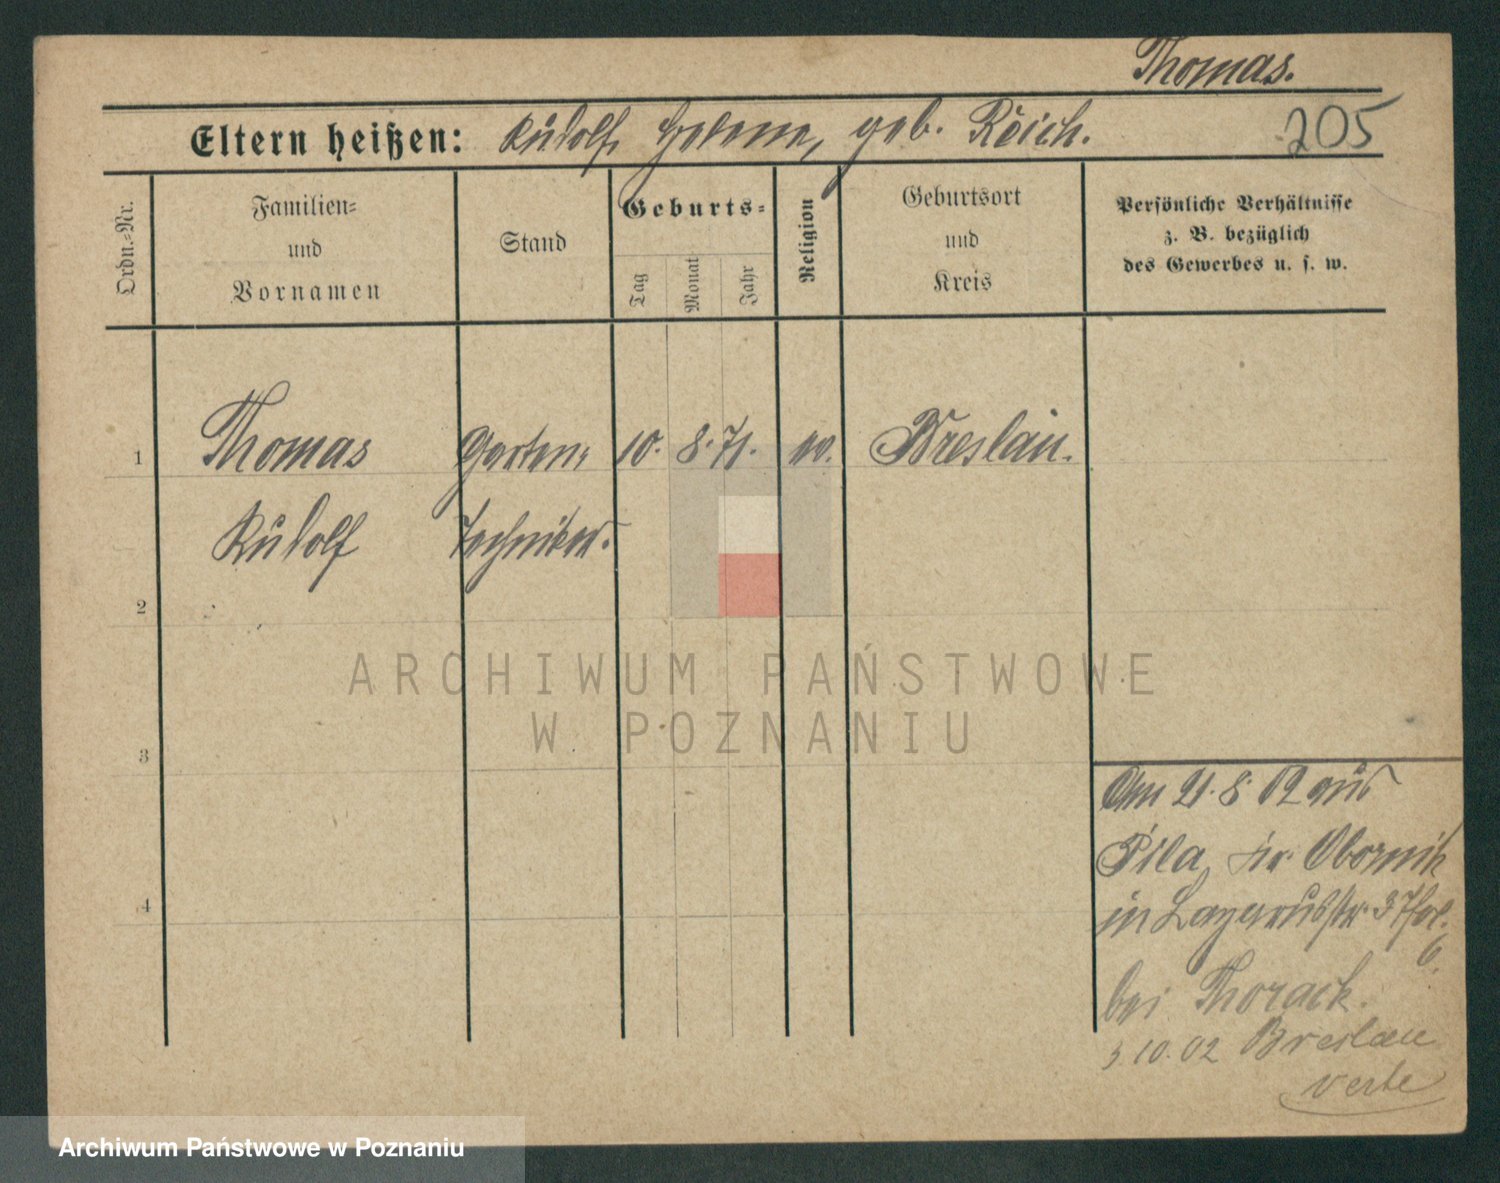 Thomas.
Eltern heißen: Rudolf, Helene, geb. Reich.
205
Ordn.-Nr.
Familien-
und
Vornamen
Stand
Geburts-
Tag
Monat
Jahr
Religion
Geburtsort
und
Kreis
Persönliche Verhältnisse
z. B. bezüglich
des Gewerbes u. s. w.
1
Thomas Garten- 10. 8. 71. Breslau.
Rudolf Techniker.
2
ARCHIWUM PAŃSTWOWE
W POZNANIU
3
Am 21. 8. 02 aus
Pila, Kr. Obornik
4
in 3
6.
bei Thorack.
3.10.02 Breslau
verte
Archiwum Państwowe w Poznaniu